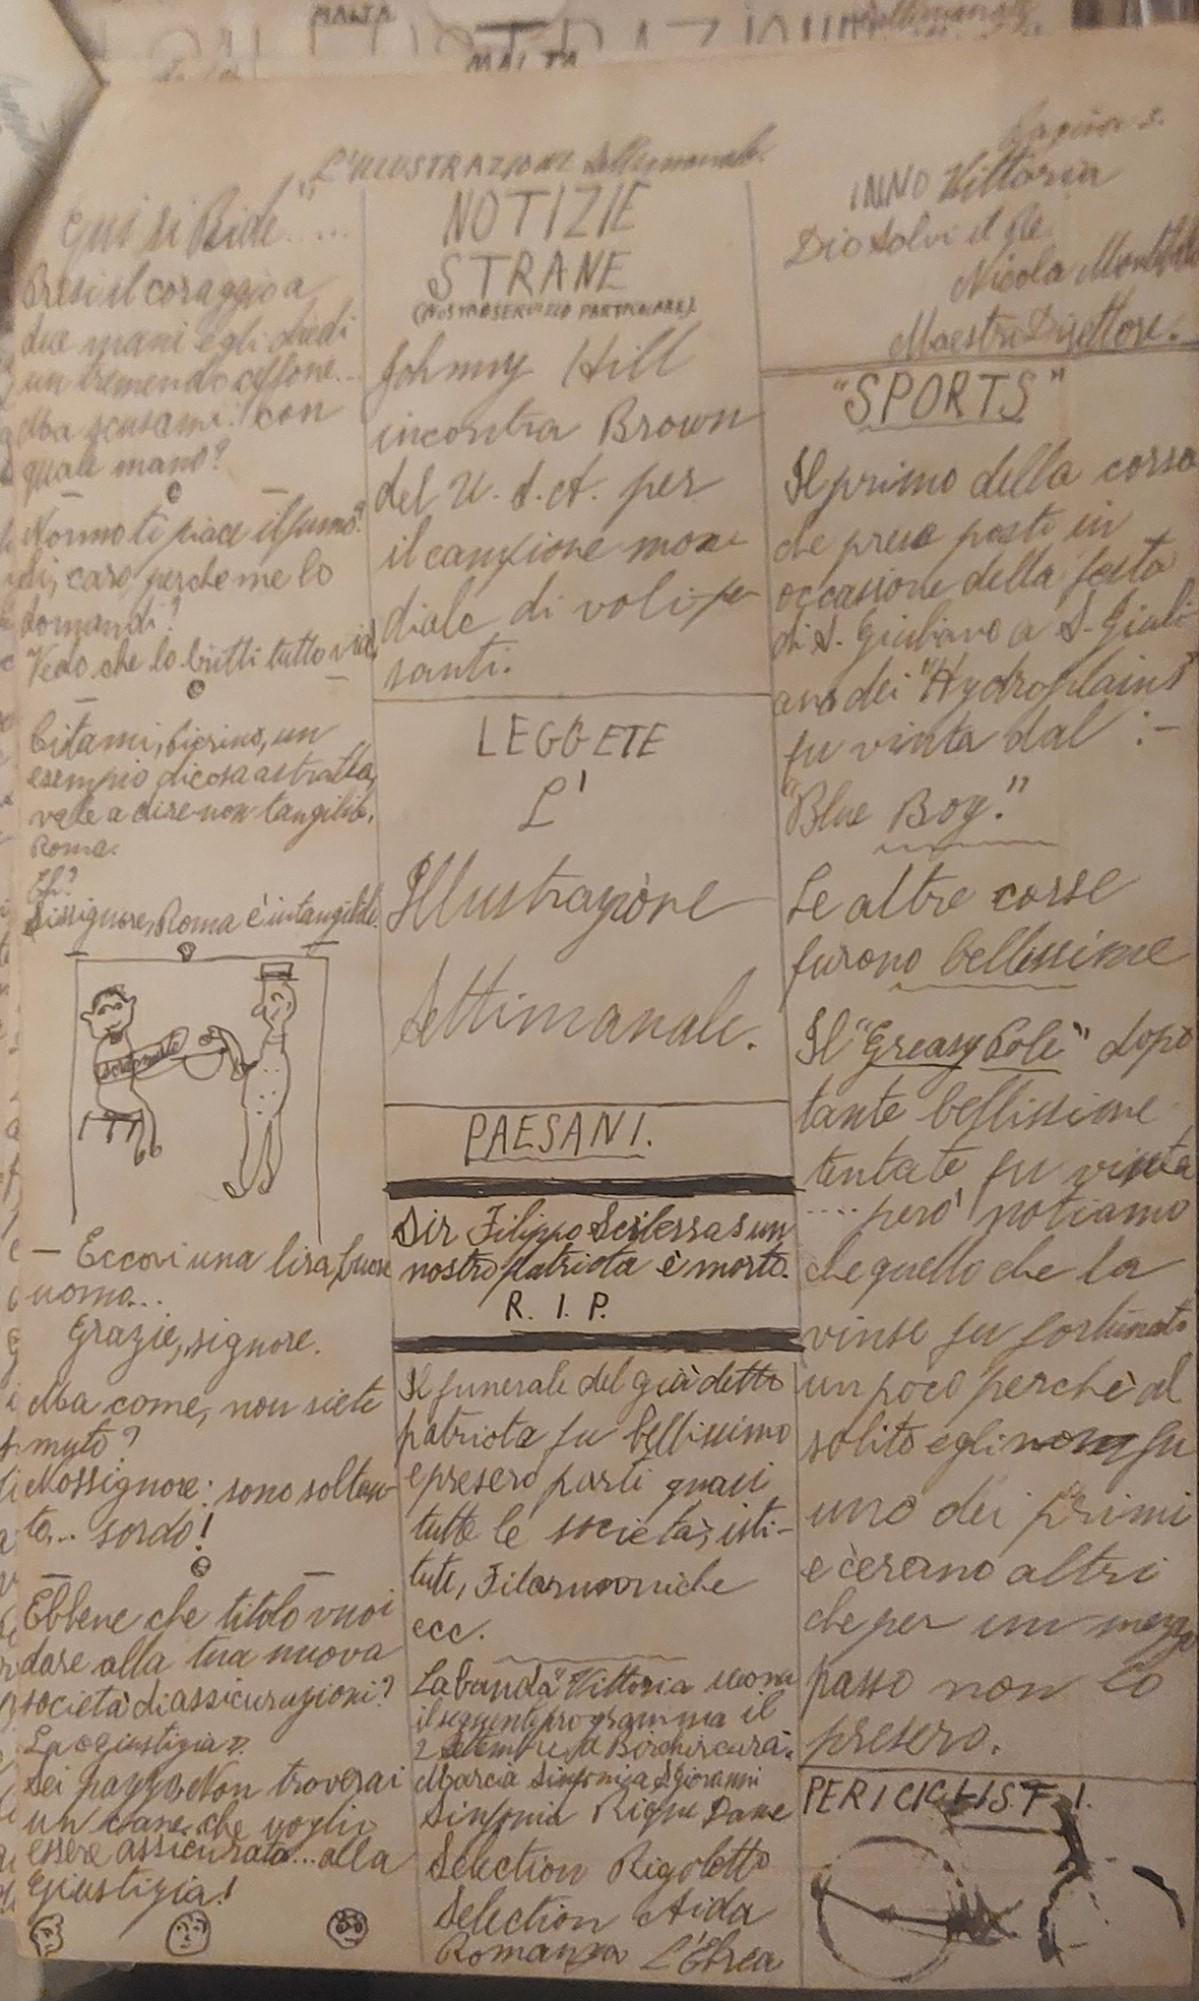 MALTA
MALTA
L'ILLUSTRAZIONE Settimanale.
Pagina 3.
"Qui si Ride"....
Presi il coraggio a
due mani e gli diedi
un tremendo ceffone...
Ma scusami! con
quale mano?
Nonno ti piace il fumo?
Si, caro, perche me lo
domandi?
Vedo che lo butti tutto via.
Citami, Pierino, un
esempio di cosa astratta,
vale a dire non tangibile.
Roma.
Eh?
Sissignore, Roma è intangibile.
Sordomuto
— Eccovi una lira, buon
uomo...
Grazie, signore.
Ma come, non siete
muto?
Nossignore: sono soltan-
to... sordo!
Ebbene che titolo vuoi
dare alla tua nuova
società di assicurazioni?
La Giustizia.
Sei pazzo. Non troverai
un cane che voglia
essere assicurato... alla
Giustizia!
NOTIZIE
STRANE
(NOSTRO SERVIZIO PARTICOLARE)
Johnny Hill
incontra Brown
del U.S.A. per
il campione mon
diale di voli pe
santi.
LEGGETE
L'
Illustrazione
Settimanale.
PAESANI.
Sir Filippo Sciberras un
nostro patriota è morto.
R. I. P.
Il funerale del già detto
patriota fu bellissimo
e presero parti quasi
tutte le società, isti-
tuti, Filarmoniche
ecc.
La banda "Vittoria suona
il seguente programma il
2 Settembre a Birchircara.
Marcia Sinfonia S Giovanni
Sinfonia Pique Dame
Selection Rigoletto
Selection Aida
Romanza L'Ebrea
INNO Vittoria
Dio Salvi il Re
Nicola
Maestro Direttore.
"SPORTS"
Il primo della corsa
che prese posto in
occasione della festa
di S. Giuliano a S. Giuli
ano dei "Hydroplains"
fu vinta dal :-
"Blue Boy."
Le altre corse
furono bellissime
Il "Greasy Pole" dopo
tante bellissime
tentate fu vinta
.... però notiamo
che quello che la
vinse fu fortunato
un poco perchè al
solito egli non fu
uno dei primi
e cerano altri
che per un mezzo
passo non lo
presero.
PER I CICLISTI.